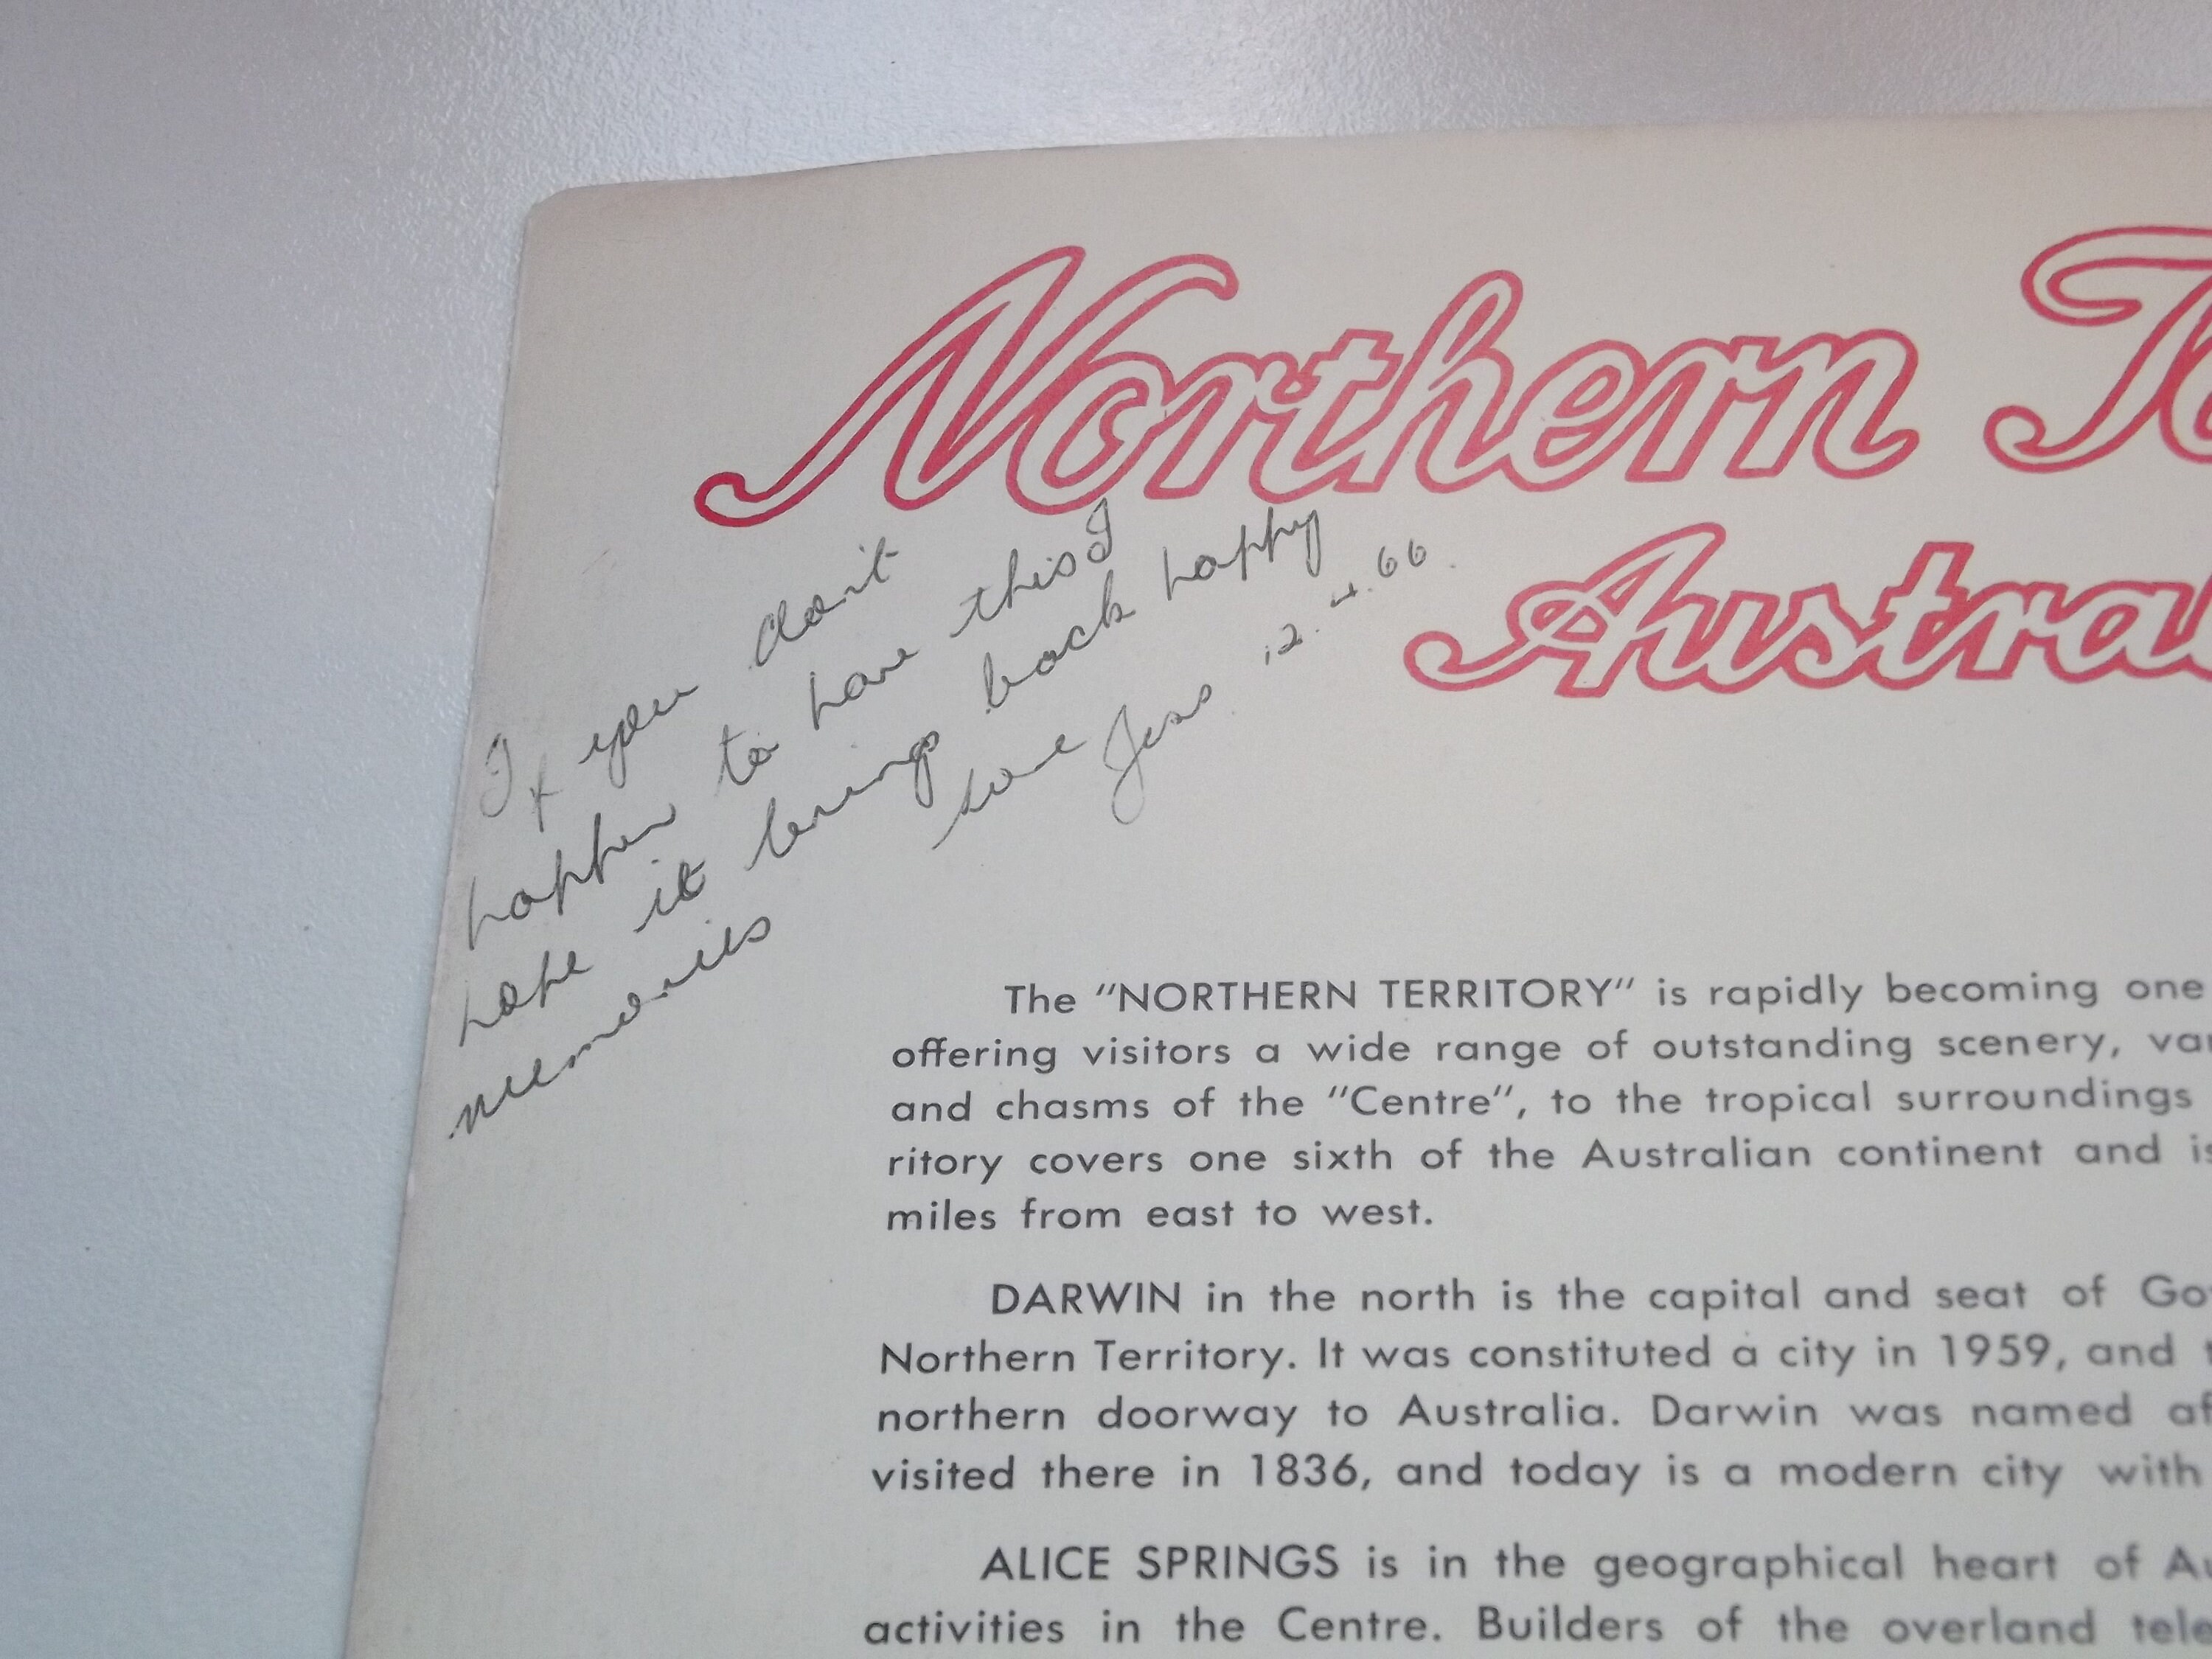 Northern Te
Austral
If you don't
happen to have this I
hope it brings back happy
memories
love Jess 12.4.66.
The "NORTHERN TERRITORY" is rapidly becoming one
offering visitors a wide range of outstanding scenery, va
and chasms of the "Centre", to the tropical surroundings
ritory covers one sixth of the Australian continent and is
miles from east to west.
DARWIN in the north is the capital and seat of Go
Northern Territory. It was constituted a city in 1959, and
northern doorway to Australia. Darwin was named af
visited there in 1836, and today is a modern city with
ALICE SPRINGS is in the geographical heart of Au
activities in the Centre. Builders of the overland tele